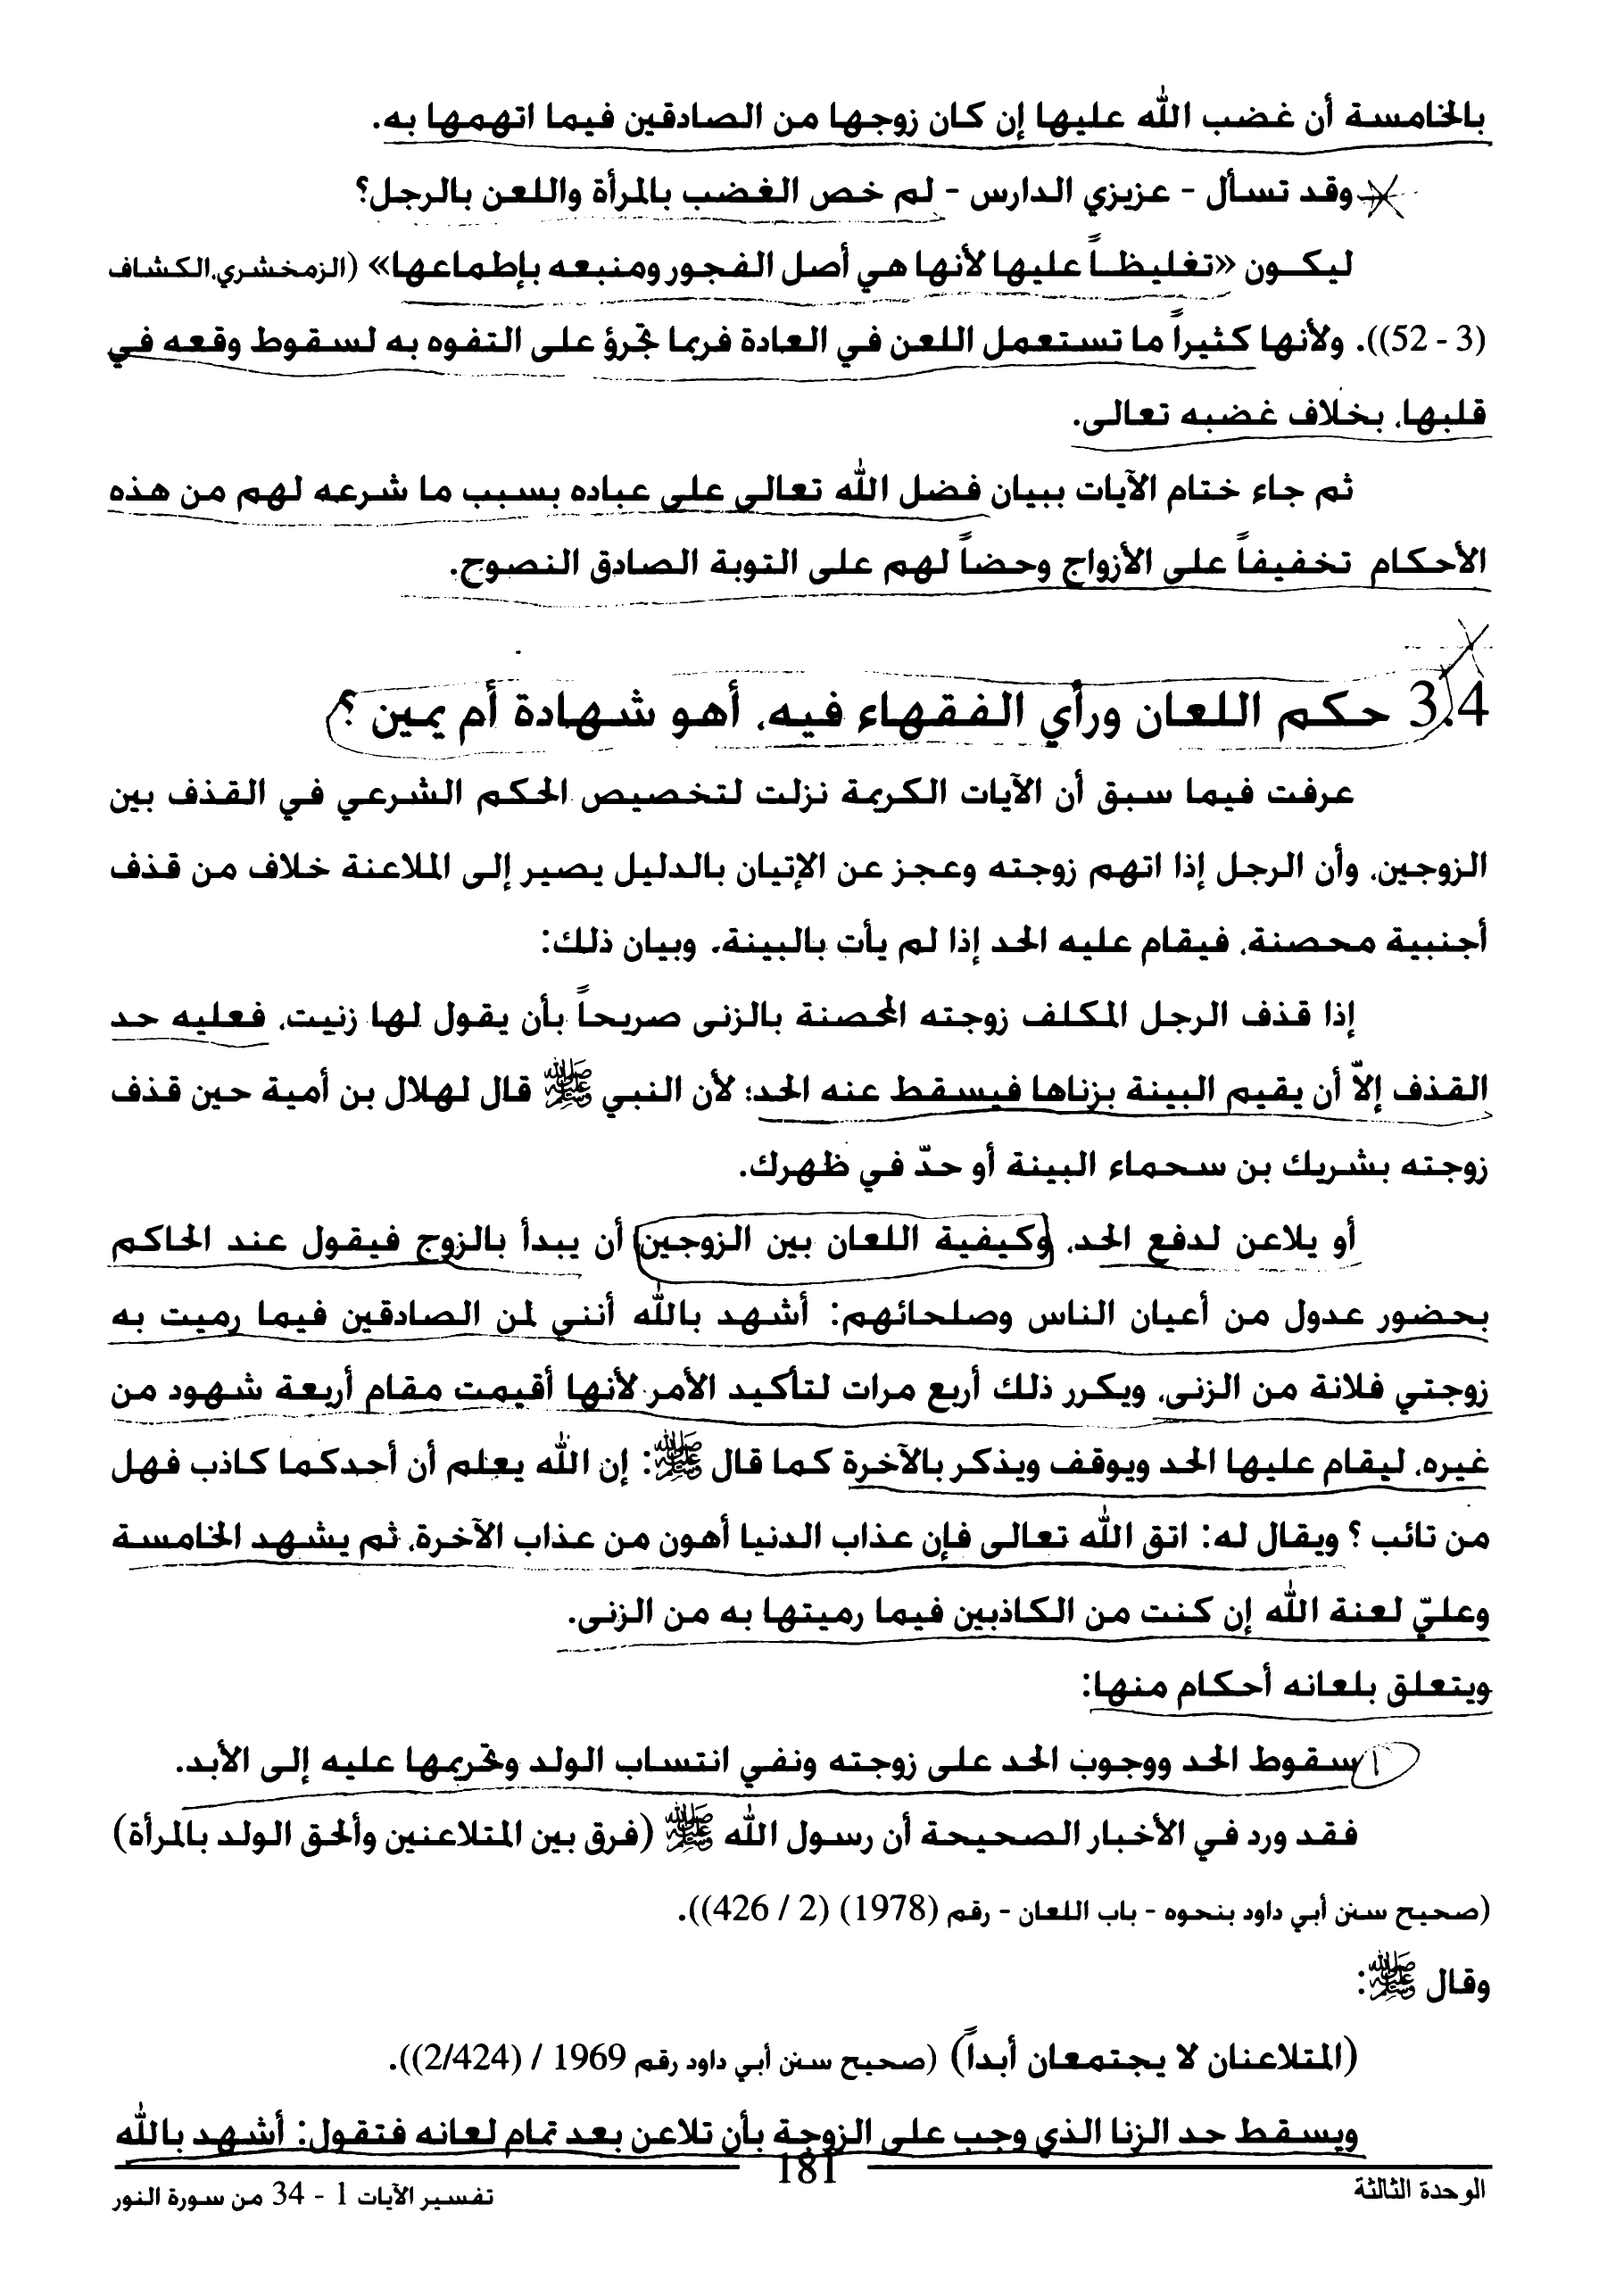 بالخامسة أن غضب الله عليها إن كان زوجها من الصادقين فيما اتهمها به.
وقد تسأل - عزيزي الدارس - لم خص الغضب بالمرأة واللعن بالرجل؟
ليكون «تغليظاً عليها لأنها هي أصل الفجور ومنبعه بإطماعها» (الزمخشري، الكشاف
(3 - 52)). ولأنها كثيراً ما تستعمل اللعن في العادة فربما تجرؤ على التفوه به لسقوط وقعه في
قلبها، بخلاف غضبه تعالى.
ثم جاء ختام الآيات ببيان فضل الله تعالى على عباده بسبب ما شرعه لهم من هذه
الأحكام تخفيفاً على الأزواج وحضاً لهم على التوبة الصادق النصوح.
3.4 حكم اللعان ورأي الفقهاء فيه، أهو شهادة أم يمين ؟
عرفت فيما سبق أن الآيات الكريمة نزلت لتخصيص الحكم الشرعي في القذف بين
الزوجين، وأن الرجل إذا اتهم زوجته وعجز عن الإتيان بالدليل يصير إلى الملاعنة خلاف من قذف
أجنبية محصنة، فيقام عليه الحد إذا لم يأت بالبينة. وبيان ذلك:
إذا قذف الرجل المكلف زوجته المحصنة بالزنى صريحاً بأن يقول لها زنيت، فعليه حد
القذف إلاّ أن يقيم البينة بزناها فيسقط عنه الحد؛ لأن النبي ﷺ قال لهلال بن أمية حين قذف
زوجته بشريك بن سحماء البينة أو حدّ في ظهرك.
أو يلاعن لدفع الحد، وكيفية اللعان بين الزوجين أن يبدأ بالزوج فيقول عند الحاكم
بحضور عدول من أعيان الناس وصلحائهم: أشهد بالله أنني لمن الصادقين فيما رميت به
زوجتي فلانة من الزنى، ويكرر ذلك أربع مرات لتأكيد الأمر لأنها أقيمت مقام أربعة شهود من
غيره، ليقام عليها الحد ويوقف ويذكر بالآخرة كما قال ﷺ: إن الله يعلم أن أحدكما كاذب فهل
من تائب ؟ ويقال له: اتق الله تعالى فإن عذاب الدنيا أهون من عذاب الآخرة، ثم يشهد الخامسة
وعليّ لعنة الله إن كنت من الكاذبين فيما رميتها به من الزنى.
ويتعلق بلعانه أحكام منها:
١ سقوط الحد ووجوب الحد على زوجته ونفي انتساب الولد وتحريمها عليه إلى الأبد.
فقد ورد في الأخبار الصحيحة أن رسول الله ﷺ (فرق بين المتلاعنين وألحق الولد بالمرأة)
(صحيح سنن أبي داود بنحوه - باب اللعان - رقم (1978) (2 / 426)).
وقال ﷺ:
(المتلاعنان لا يجتمعان أبداً) (صحيح سنن أبي داود رقم 1969 / (2/424)).
ويسقط حد الزنا الذي وجب على الزوجة بأن تلاعن بعد تمام لعانه فتقول: أشهد بالله
181
الوحدة الثالثة
تفسير الآيات 1 - 34 من سورة النور